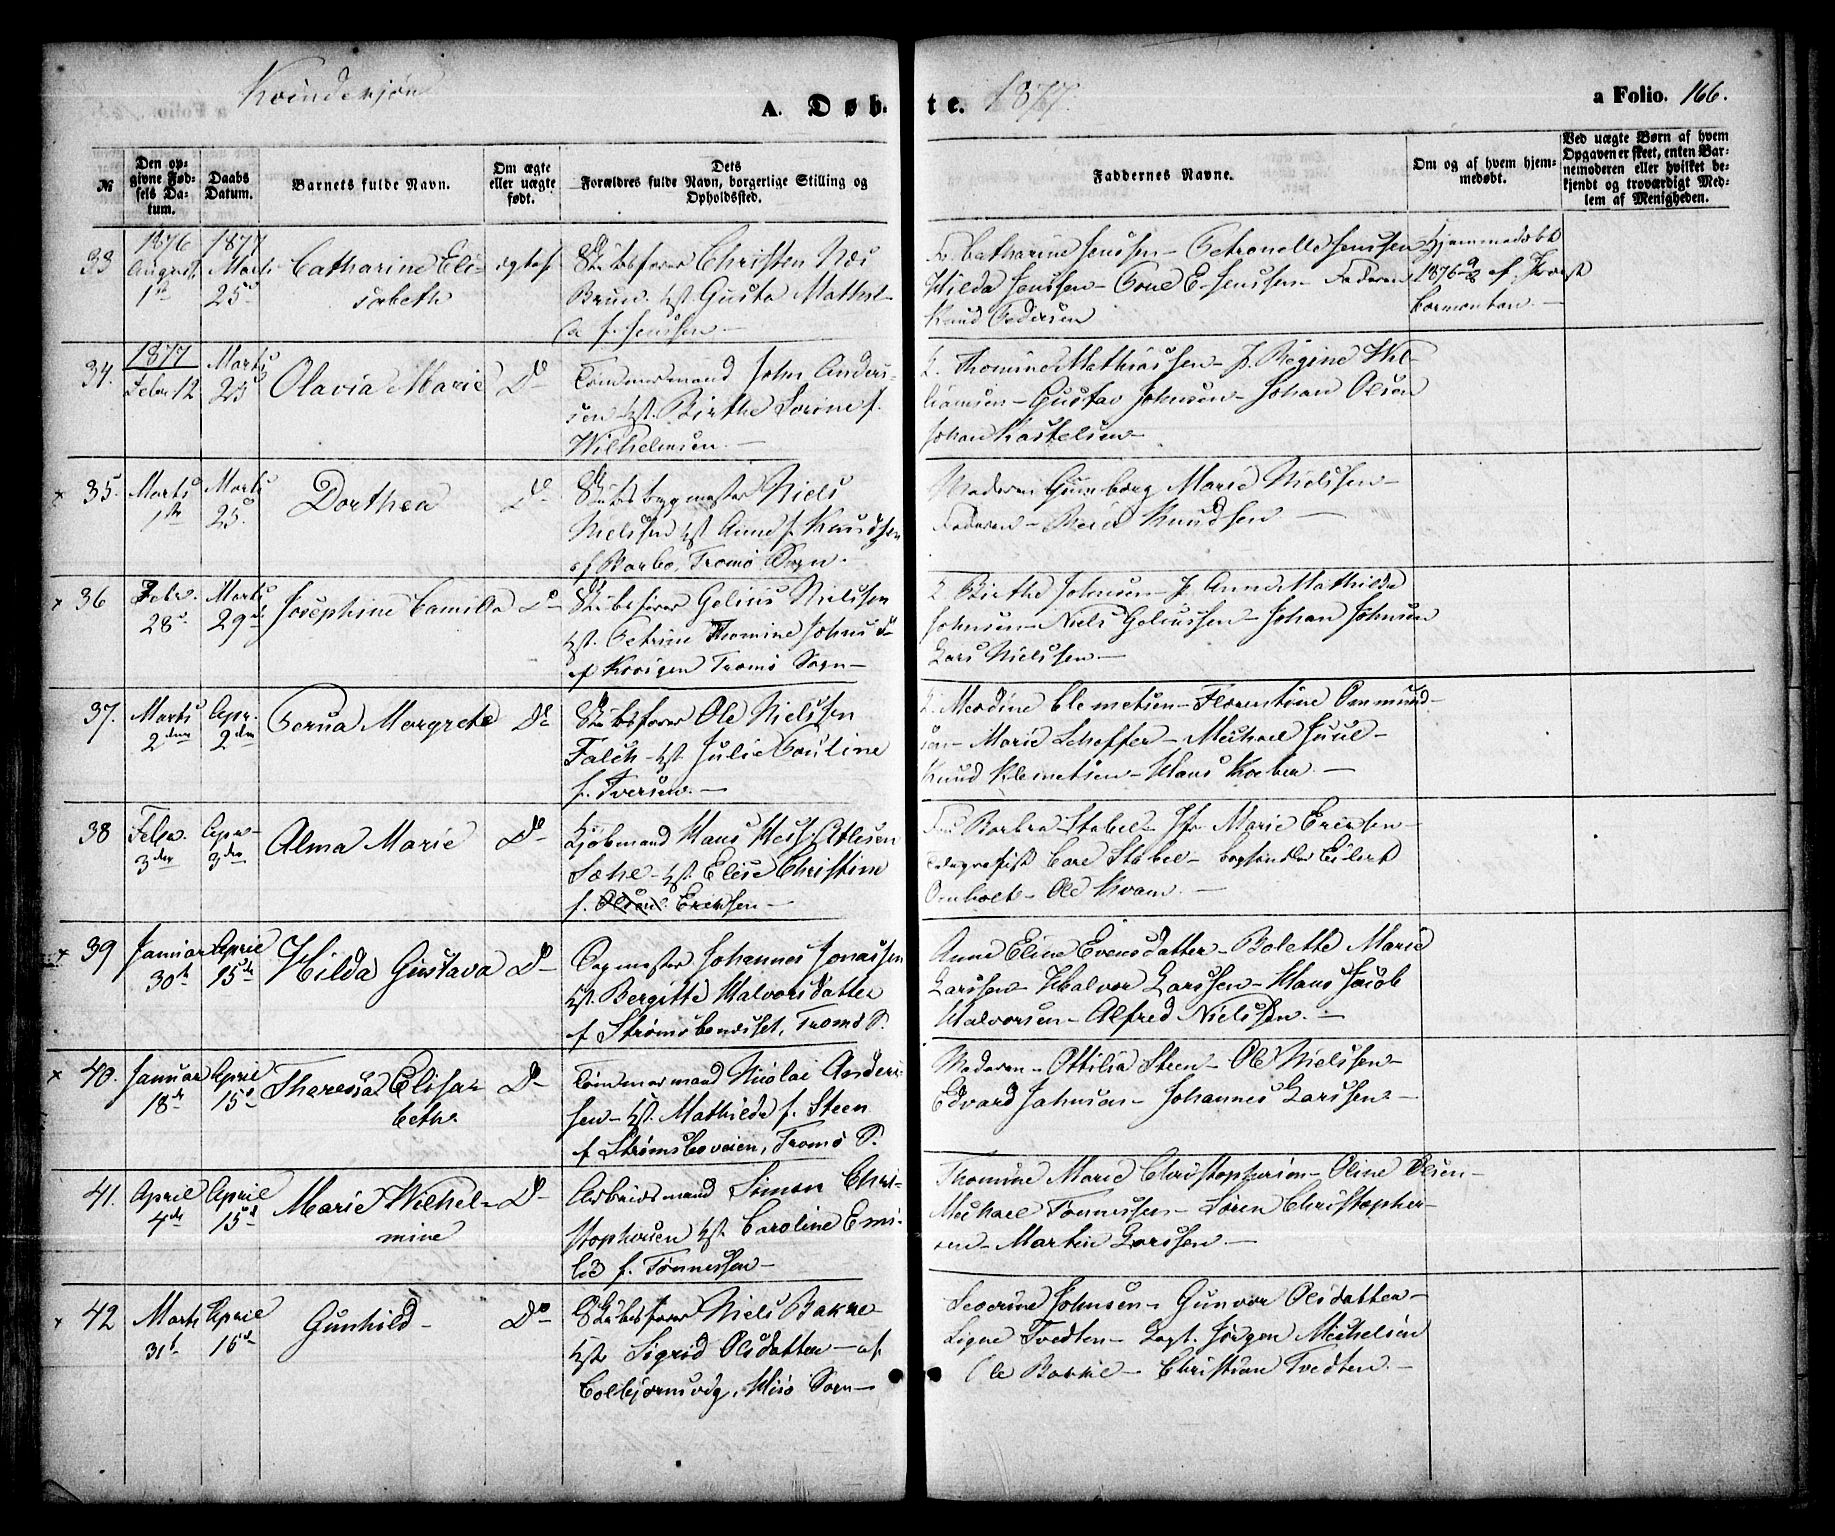 Kvindekjøn
A. Døbte. 1877.
a Folio. 166.
№
Den opgivne Fødsels Datum.
Daabs Datum.
Barnets fulde Navn.
Om ægte eller uægte født.
Dets Forældres fulde Navn, borgerlige Stilling og Opholdssted.
Faddernes Navne.
Om og af hvem hjemmedøbt.
Ved uægte Børn af hvem Opgaven er skeet, enten Barnemoderen eller hvilket bekjendt og troværdigt Medlem af Menigheden.
33
1876 August 1ste
1877 Marts 25de
Catharine Elisabeth
ægtef
Skibsfører Christen Næs
Bruun. Hst. Gusta Mathil-
a f. Jenssen
Fr. Cathrine Jenssen - Petronelle Jenssen
Hilda Jenssen - Poul E. Jenssen - Faderen
Knud Pedersen
Hjemmedøbt
1876 9/8 af Provst
Cormontan
34.
1877 Febr 12
Marts 25d
Olavia Marie
Do
Tømmermand John Anders-
sen Hst. Birthe Sørine f.
Wilhelmsen
J. Thomine Mathiassen - J. Regine Wil-
liamsen - Gustav Johnsen - Johan Olsen
Johan Kastelsen
x 35.
Marts 1ste
Marts 25.
Dorthea
Do
Skibsbygmester Niels
Nielssen Hst Anne f. Knudsen
af Barbo, Tromø Sogn.
Moderen Gunborg Marie Nielssen -
Faderen - Knudsen
x 36
Febr. 28d.
Marts 29de
Josephine Camilla
Do
Skibsfører Gelius Nielssen
Hst. Petrine Thomine Johns D
af Krøigen Tromø Sogn
J Birthe Johnsen - J. Anne Mathilde
Johnsen - Niels Geliussen - Johan Johnsen
Lars Nielssen
37.
Marts 2den
Apr. 2den
Perua Margrete
Do
Skibsfører Ole Nielssen
Falch - Hst Julie Pauline
f. Iversen.
J. Merdine Clemetsen - Florentine Ommund-
sen - Marie Scheffer - Michael Juul -
Knud Klemetsen - Hans
38
Febr. 3die
Apr 3die
Alma Marie
Do
Kjøbmand Hans Atlesen
Sæhl - Hst Elise Christine
f. Olsen. Eriksen
Fru Barbra Stabel - Jfr Marie Eriksen -
Telegrafist Carl Stabel - Boghandler Eilert
Omholt - Ole Kvam.
x 39
Januar 30te
April 15de
Hilda Gustava
Do
Bygmester Johannes Jonassen
Hst. Bergitte Halvorsdatter
af Strømsbuneset, Tromø S.
Anne Eline Evensdatter - Bolette Marie
Larssen - Halvor Larssen - Hans Jacob
Halvorsen - Alfred Nielssen.
x 40.
Januar 18de
April 15d
Theresia Elisabeth.
Do
Tømmermand Nicolai Anders-
sen - Hst. Mathilde f. Steen
af Strømsboveien, Tromø S.
Moderen - Ottilia Steen - Ole Nielssen -
Edvard Johnson - Johannes Larssen
41.
April 4de
April 15d
Marie Wilhelmine
Do
Arbeidsmand Simon Chri-
stophersen Hst. Caroline Emi-
lie f. Tønnessen
Thomine Marie Christophersen - Oline Olsen -
Michael Tønnessen - Søren Christopher-
sen - Martin Larssen
x 42
Marts 31te
April 16d
Gunhild
Do
Skibsfører Niels Bakke
Hst Sigrid Olsdatter - af
Colbjørnsvig, Hisø Sogn
Severine Johnsen - Gunvor Olsdatter -
Signe Tvedten - Jørgen Michelsen
Ole Bakke - Christian Tvedten.